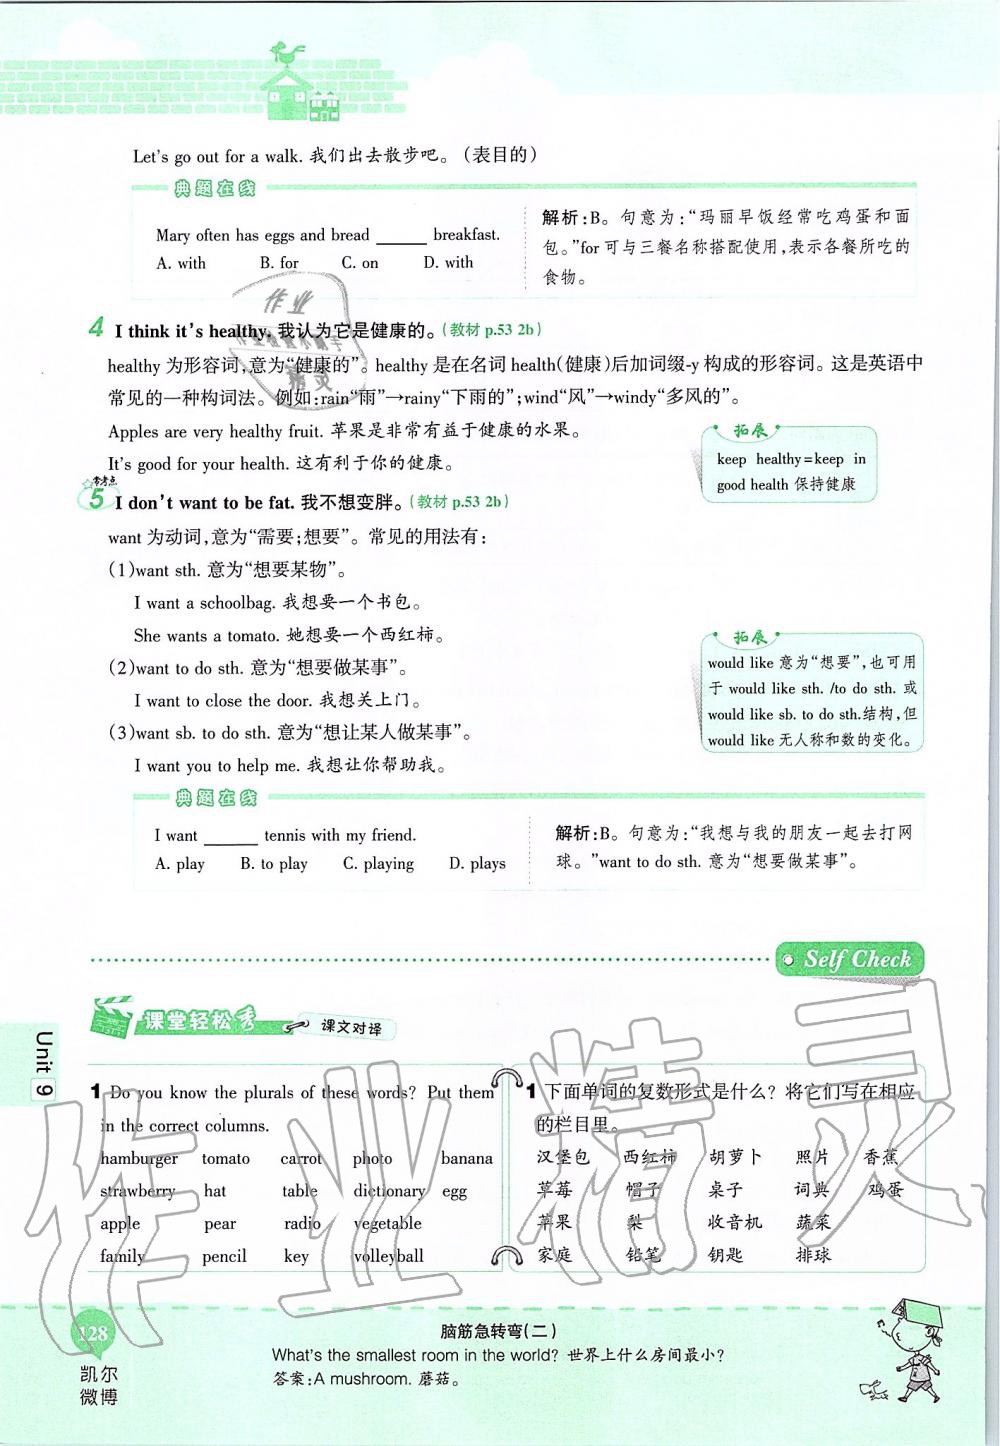 Let's go out for a walk. 我们出去散步吧。(表目的)
典题在线
Mary often has eggs and bread ______ breakfast.
A. with B. for C. on D. with
解析:B。句意为:“玛丽早饭经常吃鸡蛋和面
包。”for 可与三餐名称搭配使用,表示各餐所吃的
食物。
4 I think it's healthy. 我认为它是健康的。(教材 p.53 2b)
healthy 为形容词,意为“健康的”。healthy 是在名词 health(健康)后加词缀-y 构成的形容词。这是英语中
常见的一种构词法。例如:rain“雨”→rainy“下雨的”;wind“风”→windy“多风的”。
Apples are very healthy fruit. 苹果是非常有益于健康的水果。
It's good for your health. 这有利于你的健康。
拓展
keep healthy=keep in
good health 保持健康
常考点
5 I don't want to be fat. 我不想变胖。(教材 p.53 2b)
want 为动词,意为“需要;想要”。常见的用法有:
(1)want sth. 意为“想要某物”。
I want a schoolbag. 我想要一个书包。
She wants a tomato. 她想要一个西红柿。
(2)want to do sth. 意为“想要做某事”。
I want to close the door. 我想关上门。
(3)want sb. to do sth. 意为“想让某人做某事”。
I want you to help me. 我想让你帮助我。
拓展
would like 意为“想要”,也可用
于 would like sth. /to do sth. 或
would like sb. to do sth.结构,但
would like 无人称和数的变化。
典题在线
I want ______ tennis with my friend.
A. play B. to play C. playing D. plays
解析:B。句意为:“我想与我的朋友一起去打网
球。”want to do sth. 意为“想要做某事”。
Self Check
课堂轻松秀 课文对译
Unit 9
1 Do you know the plurals of these words? Put them
in the correct columns.
hamburger tomato carrot photo banana
strawberry hat table dictionary egg
apple pear radio vegetable
family pencil key volleyball
1 下面单词的复数形式是什么?将它们写在相应
的栏目里。
汉堡包 西红柿 胡萝卜 照片 香蕉
草莓 帽子 桌子 词典 鸡蛋
苹果 梨 收音机 蔬菜
家庭 铅笔 钥匙 排球
128
凯尔
微博
脑筋急转弯(二)
What's the smallest room in the world? 世界上什么房间最小?
答案:A mushroom. 蘑菇。
作业精灵